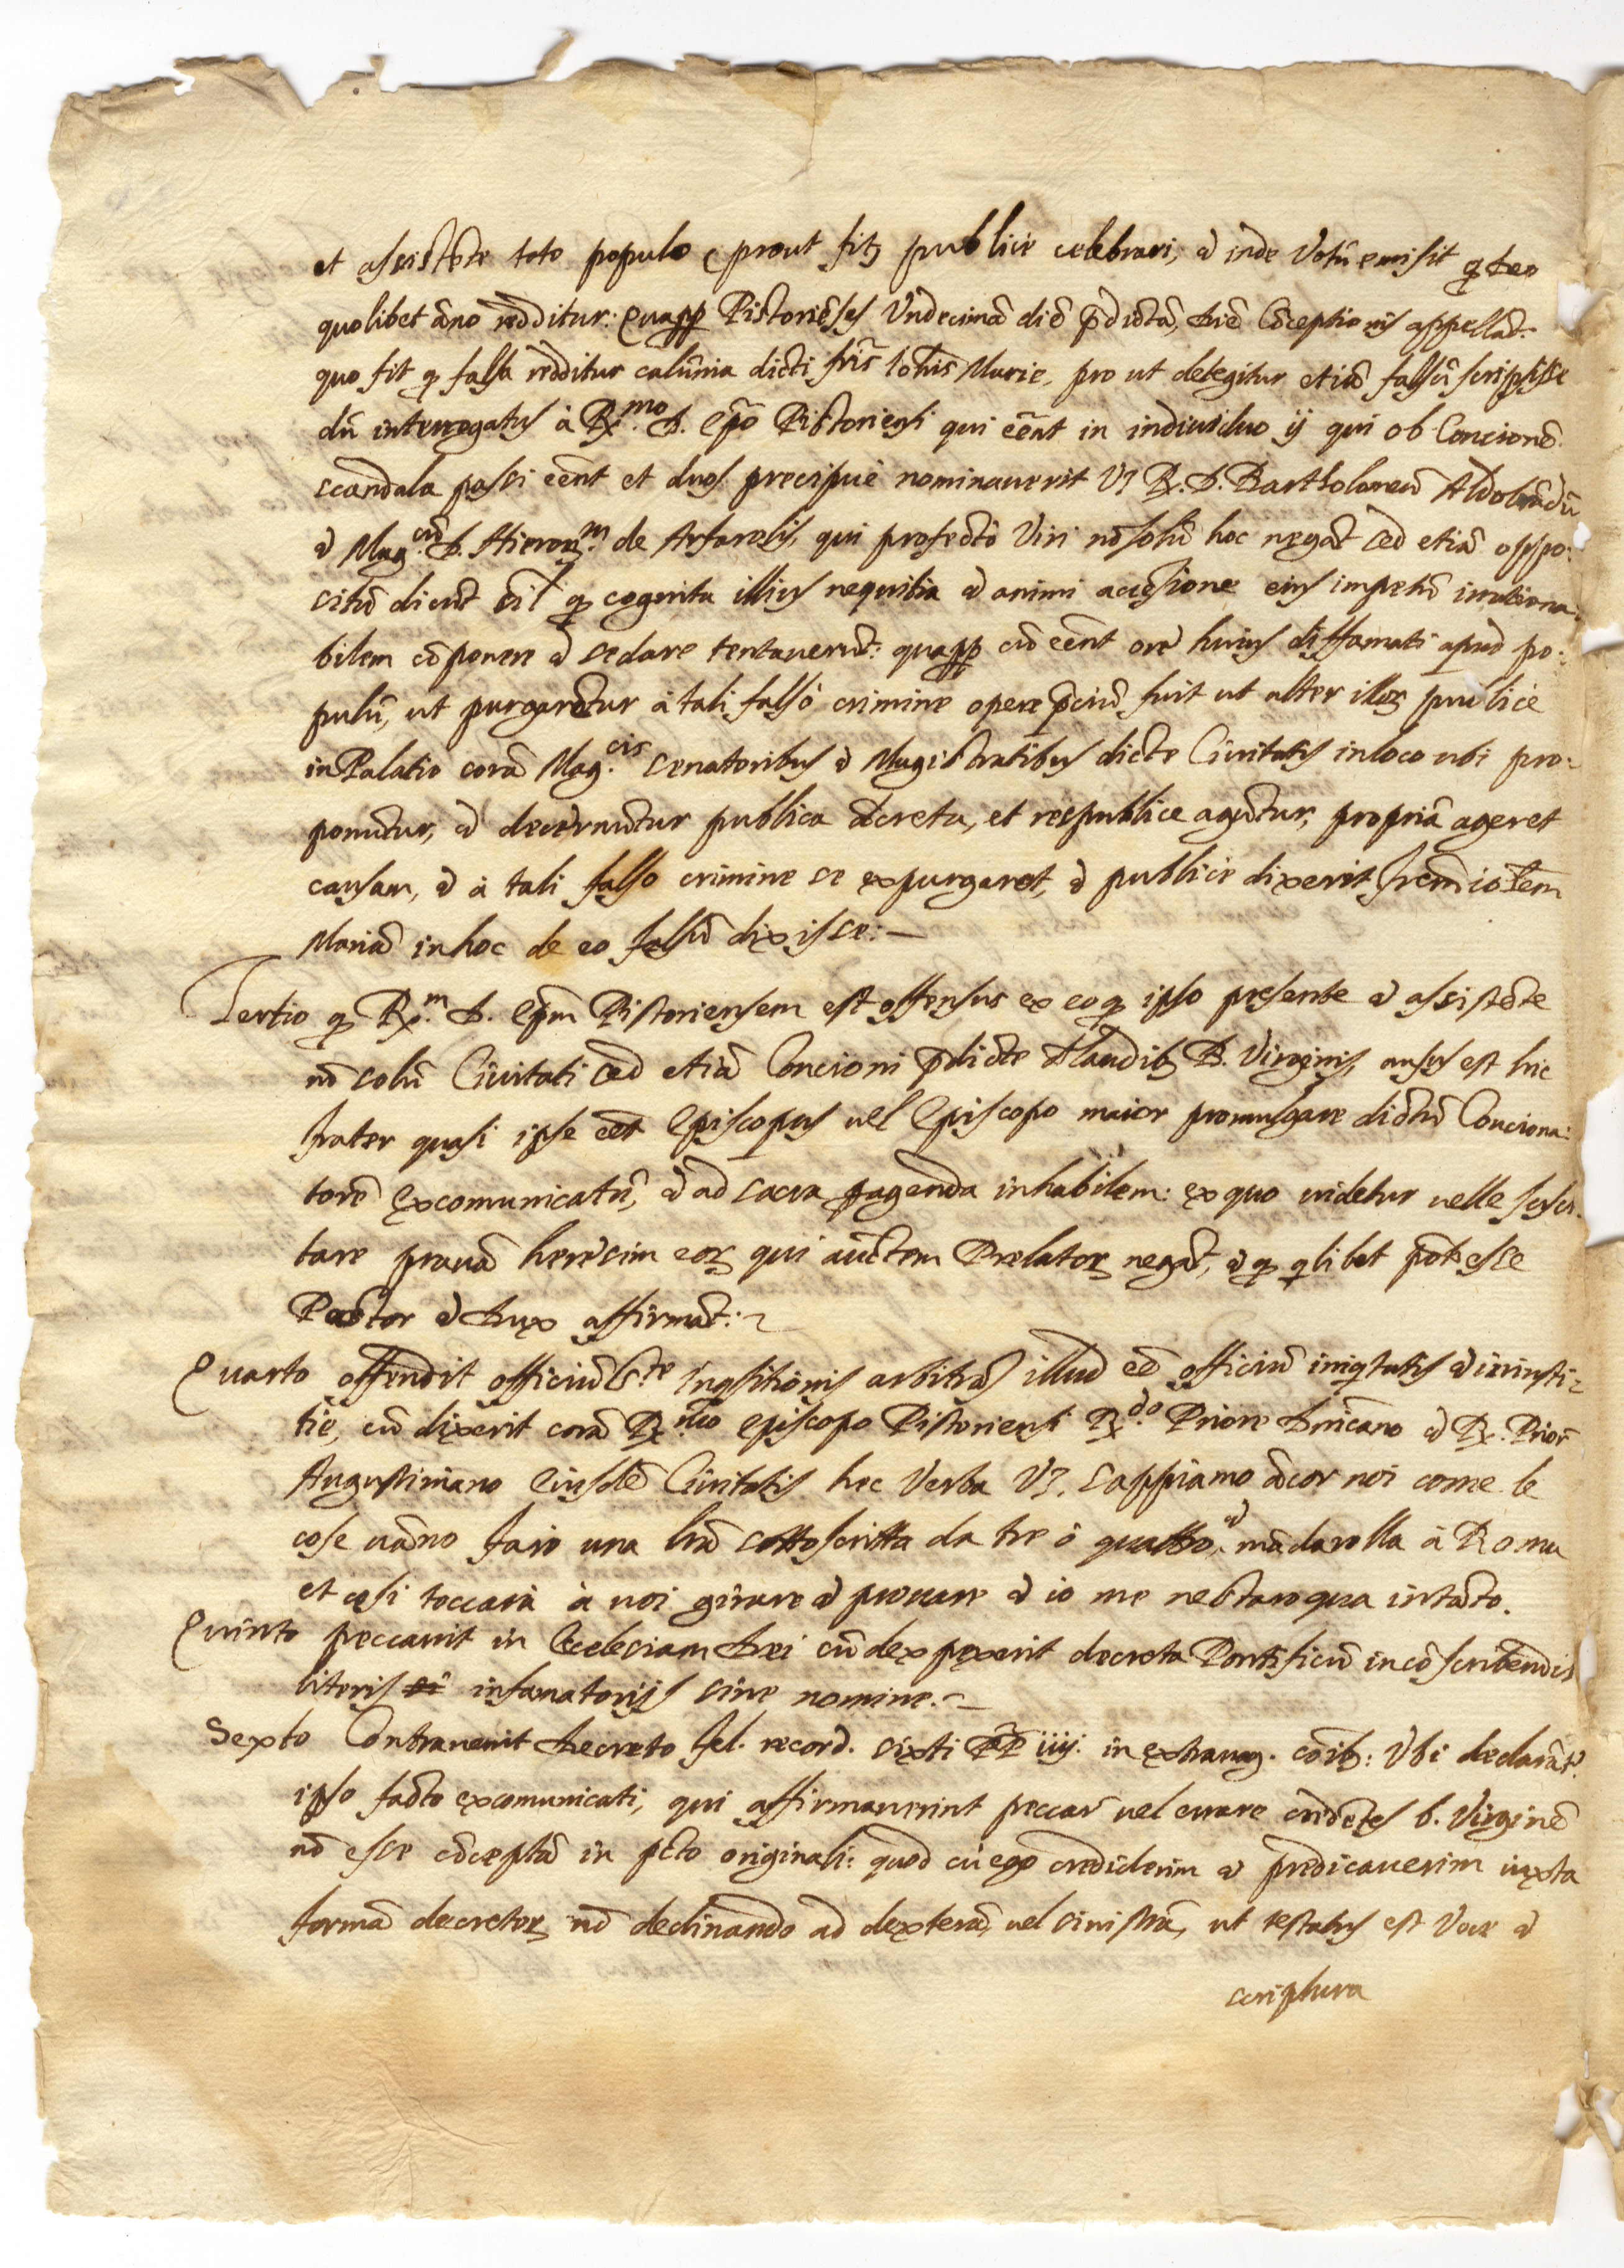 et assistẽte toto populo (prout fit) publice celebrari, et inde Votũ emisit qd deo
quolibet ãno redditur: Quapp Pistoriẽses Vndecimã diẽ p̃dictã, diẽ Cõceptionis appellãt.
quo fit qd falsa redditur calũnia dicti fr̃is Iohis Marie, pro ut detegitur etiã falsũ scripsisse
dũ interrogatus à R.mo D. Ep̃o Pistoriensi qui eẽnt in indiuiduo ij qui ob Concionẽ
scandala passi eẽnt et duos precipuè nominauerit Vz R. D. Bartholomeũ Aldobrãdũ
et Mag.cũ D. Hieron.m de Arfarolis, qui profectò Viri nõ solũ hoc negãt sed etiã oppo:
sitũ dicũt qd cognita illius nequitia et animi accẽsione eius impetũ irrationa
bilem cõponere et sedare tentauerũt: quapp cũ eẽnt ore huius diffamati apud po:
pulũ, ut purgarẽtur à tali falso crimine opere p̃ciũ fuit ut alter illoꝝ publicè
in Palatio corã Mag.cis Senatoribus et Magistratibus dicte Ciuitatis in loco ubi pro:
ponũtur, et decernũtur publica decreta, et respublice agũtur, propriã ageret
causam, et à tali falso crimine se expurgaret, et publicè dixerit frem̃ Ioẽm
Mariã in hoc de eo falsũ dixisse:—
Tertio qd R.m D. Ep̃m Pistoriensem est offensus ex eo qd ipso presente et assistẽte
nõ solũ Ciuitati sed etiã Concioni p̃dicte de laudibꝫ B. Virginis, ausus est hic
frater quasi ipse eẽt Episcopus uel Episcopo maior promulgare dictũ Conciona:
torẽ excomunicatũ, et ad sacra peragenda inhabilem: ex quo uidetur uelle susci
tare prauã heresim eoꝝ qui auctẽm Prelatoꝝ negãt, et qd qlibet põt esse
Pastor et Dux affirmãt:~
Quarto offendit officiũ S.te Inqsitionis arbitrãs illud eẽ officiũ iniqtatis et iniusti:
tie, cũ dixerit corã R.mo Episcopo Pistoriensi R.do Priore Dñicano et R. Priore
Augustiniano Eiusdẽ Ciuitatis hec Verba Vz. Sappiamo ãcor noi come le
cose uãno faro una lrã sottoscritta da tre ò quattro, et mãdarolla à Roma
et cosi toccarà à noi girare et prouare et io me ne staro qua intãto.
Quinto peccauit in Ecclesiam Dei cũ dexpexerit decreta Pontificũ in cõscribendis
literis infamatorijs sine nomine.~
Sexto Contrauenit Decreto fel. record. Sixti PP iiij. in extrauag. cõibꝫ: Vbi declarãt.
ipso facto excomunicati, qui affirmauerint peccare uel errare credẽtes b. Virginẽ
nõ esse cõceptã in pcto originali: quod cũ ego crediderim et predicauerim iuxta
formã decretoꝝ nõ declinando ad dexterã, uel sinistrã, ut testatus est Voce et
scriptura